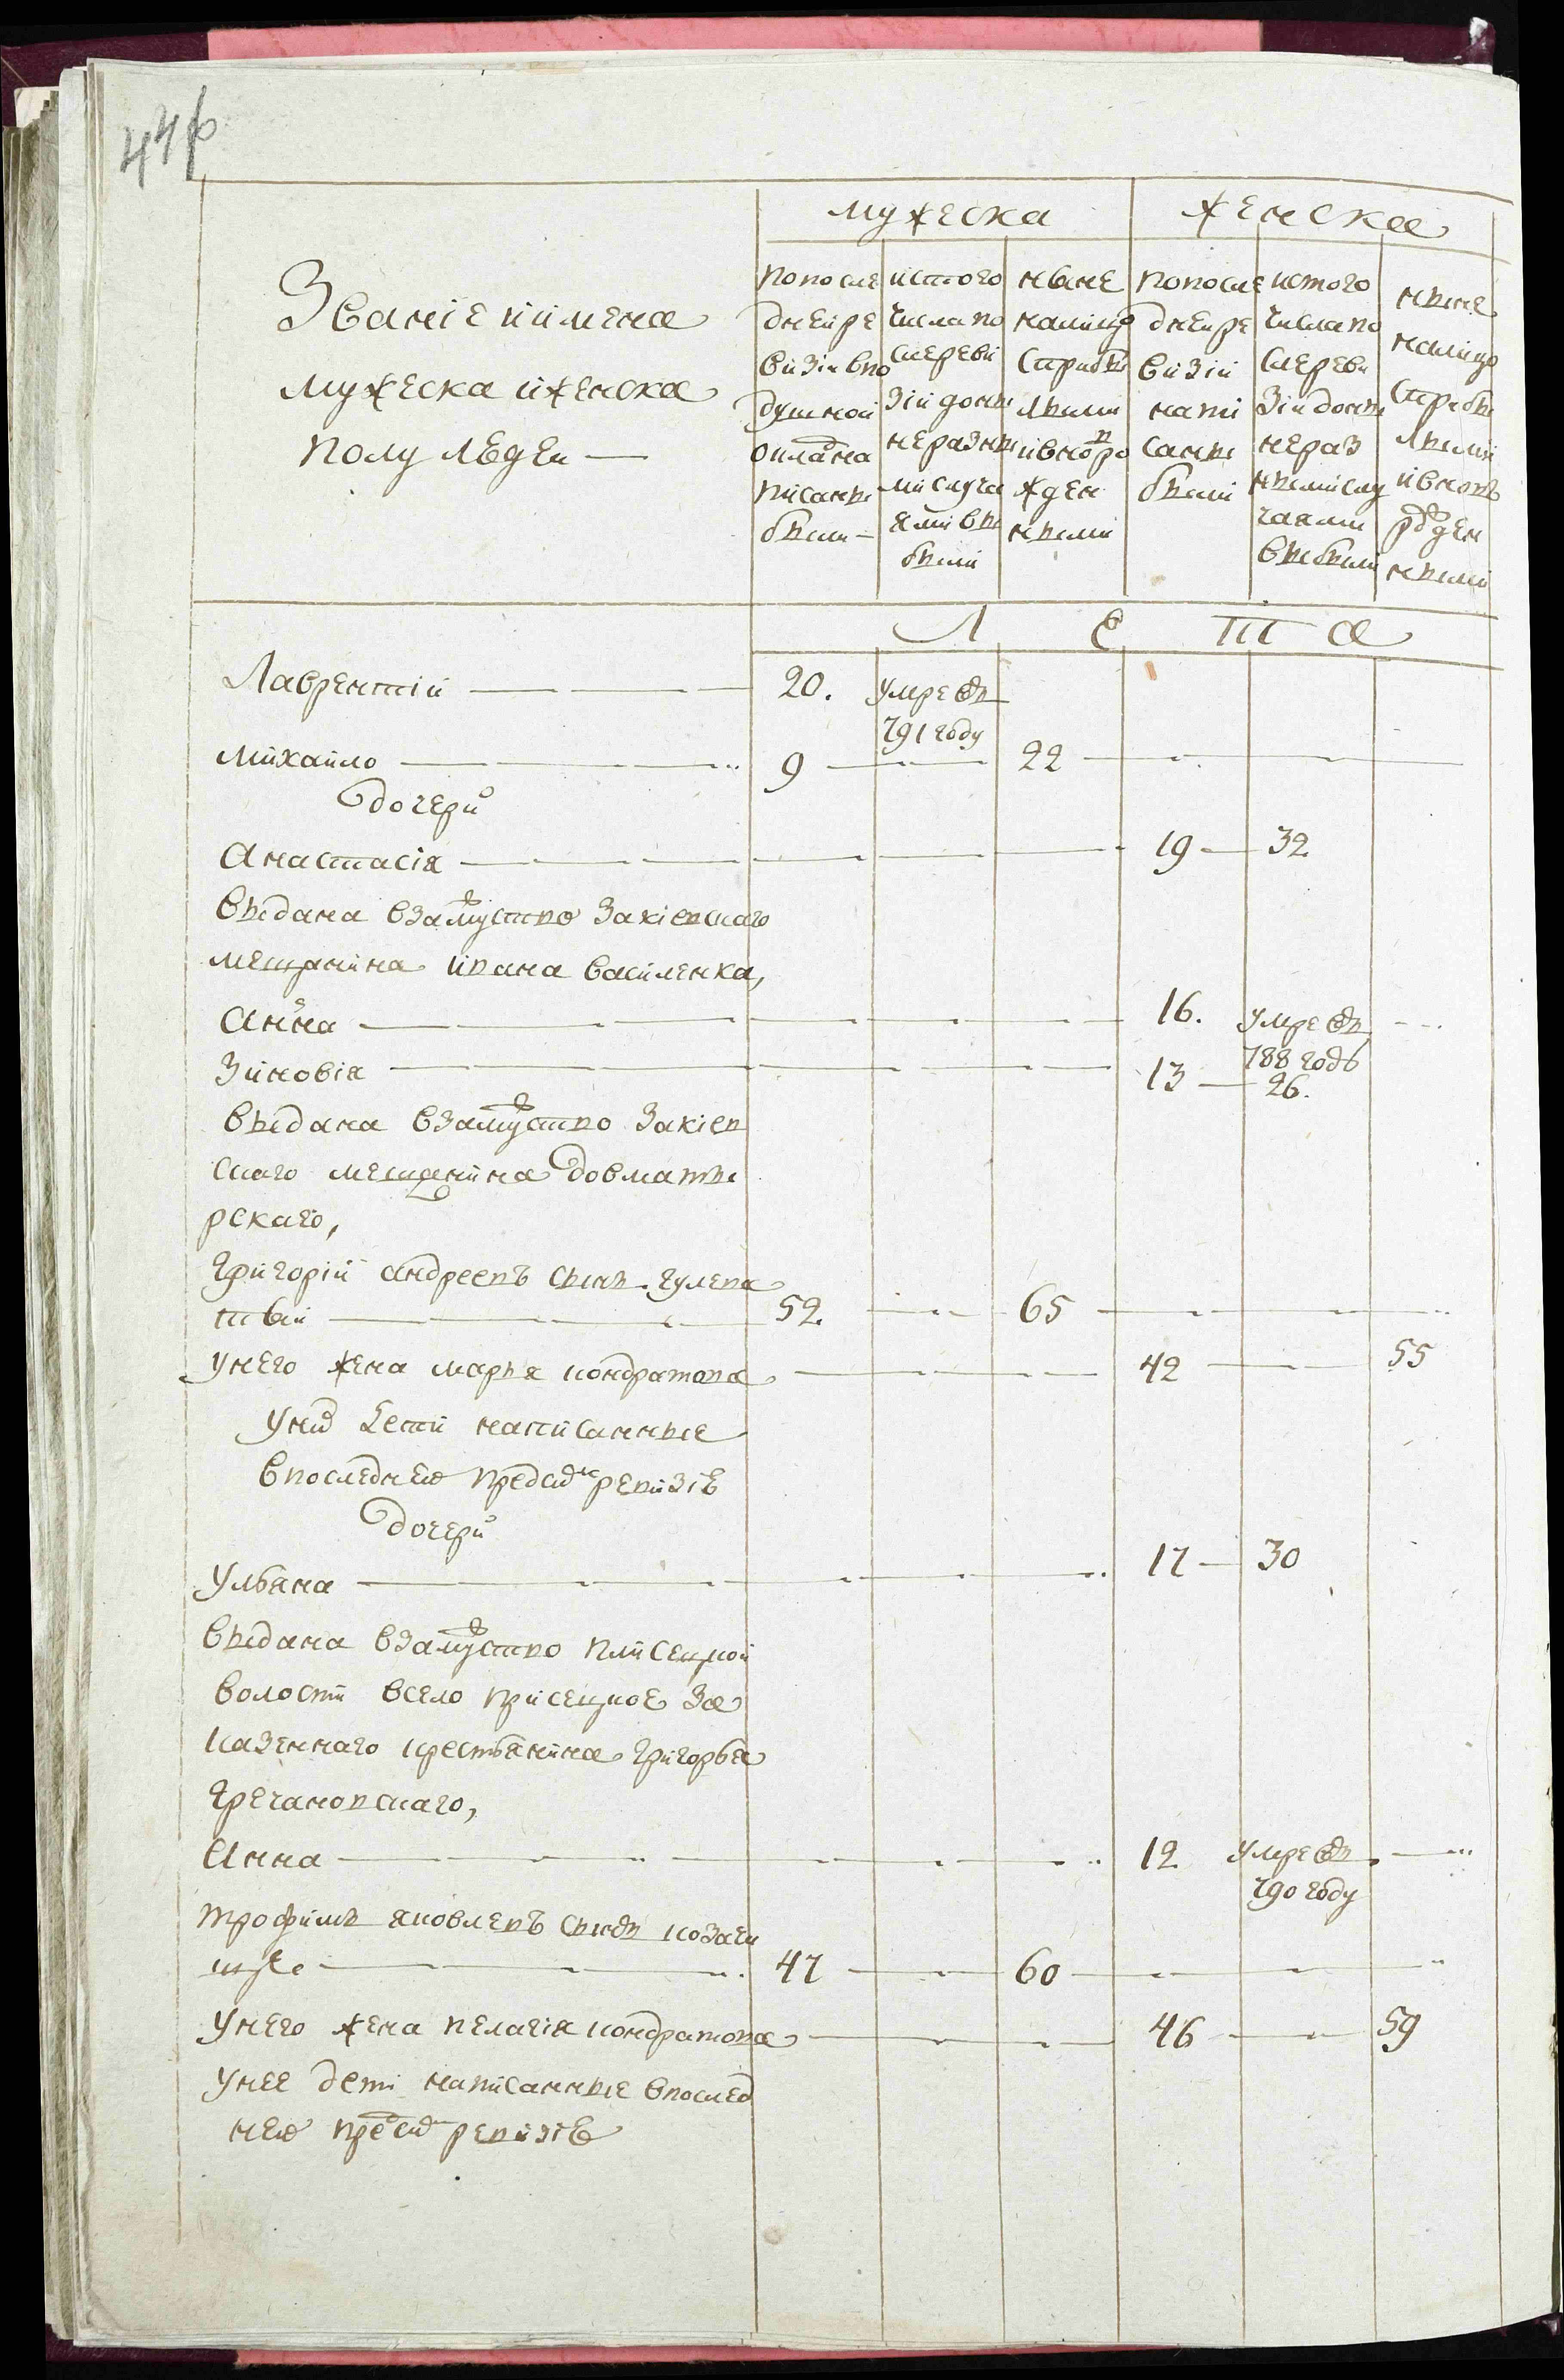 44 ф
мужеска
женска
Званіе и имена
мужеска и женска
полу людей —
попосле
дней ре
визіи впо
душной
окладъ на
писаны
были —
истого
числа по
слереви
зіи доны
неразны
ми случа
ями вы
были
ныне
налицо
спрыбы
лыми
ивновъ ро
жден
ными
попосле
дней ре
визіи
напи
саны
были
истого
числа по
слереви
зіи доны
нераз
ными слу
чаями
выбыли
ныне
налицо
спрыбы
лыми
ивновъ
рожден
ными
Л Е Т А
Лаврентій — 20. умре въ
791 году
Михайло — 9 — 22
дочери
Анастасія — 19 — 32
выдана взамужство закіевскаго
мещанина ивана василенка,
Анна — 16. умре въ
788 годъ
Зиновія — 13 — 26.
выдана взамужство закіев
скаго мещанина довматы
рскаго,
Григорій андреевъ сынъ гулева
тый — 52. — 65
унего жена марья кондратова — 42 — 55
уних дети написанные
впоследней пред сим ревизіе
дочери
Ульяна — 17 — 30
выдана взамужство плисецкой
волости всело плисецкое за
казеннаго крестьянина григорья
гречановскаго,
Анна — 12 умре въ
790 году
трофимъ яковлевъ сынъ козачи
— 47 — 60
Унего жена пелагія кондратова — 46 — 59
унее дети написанные впослед
ней пред сим ревизіе